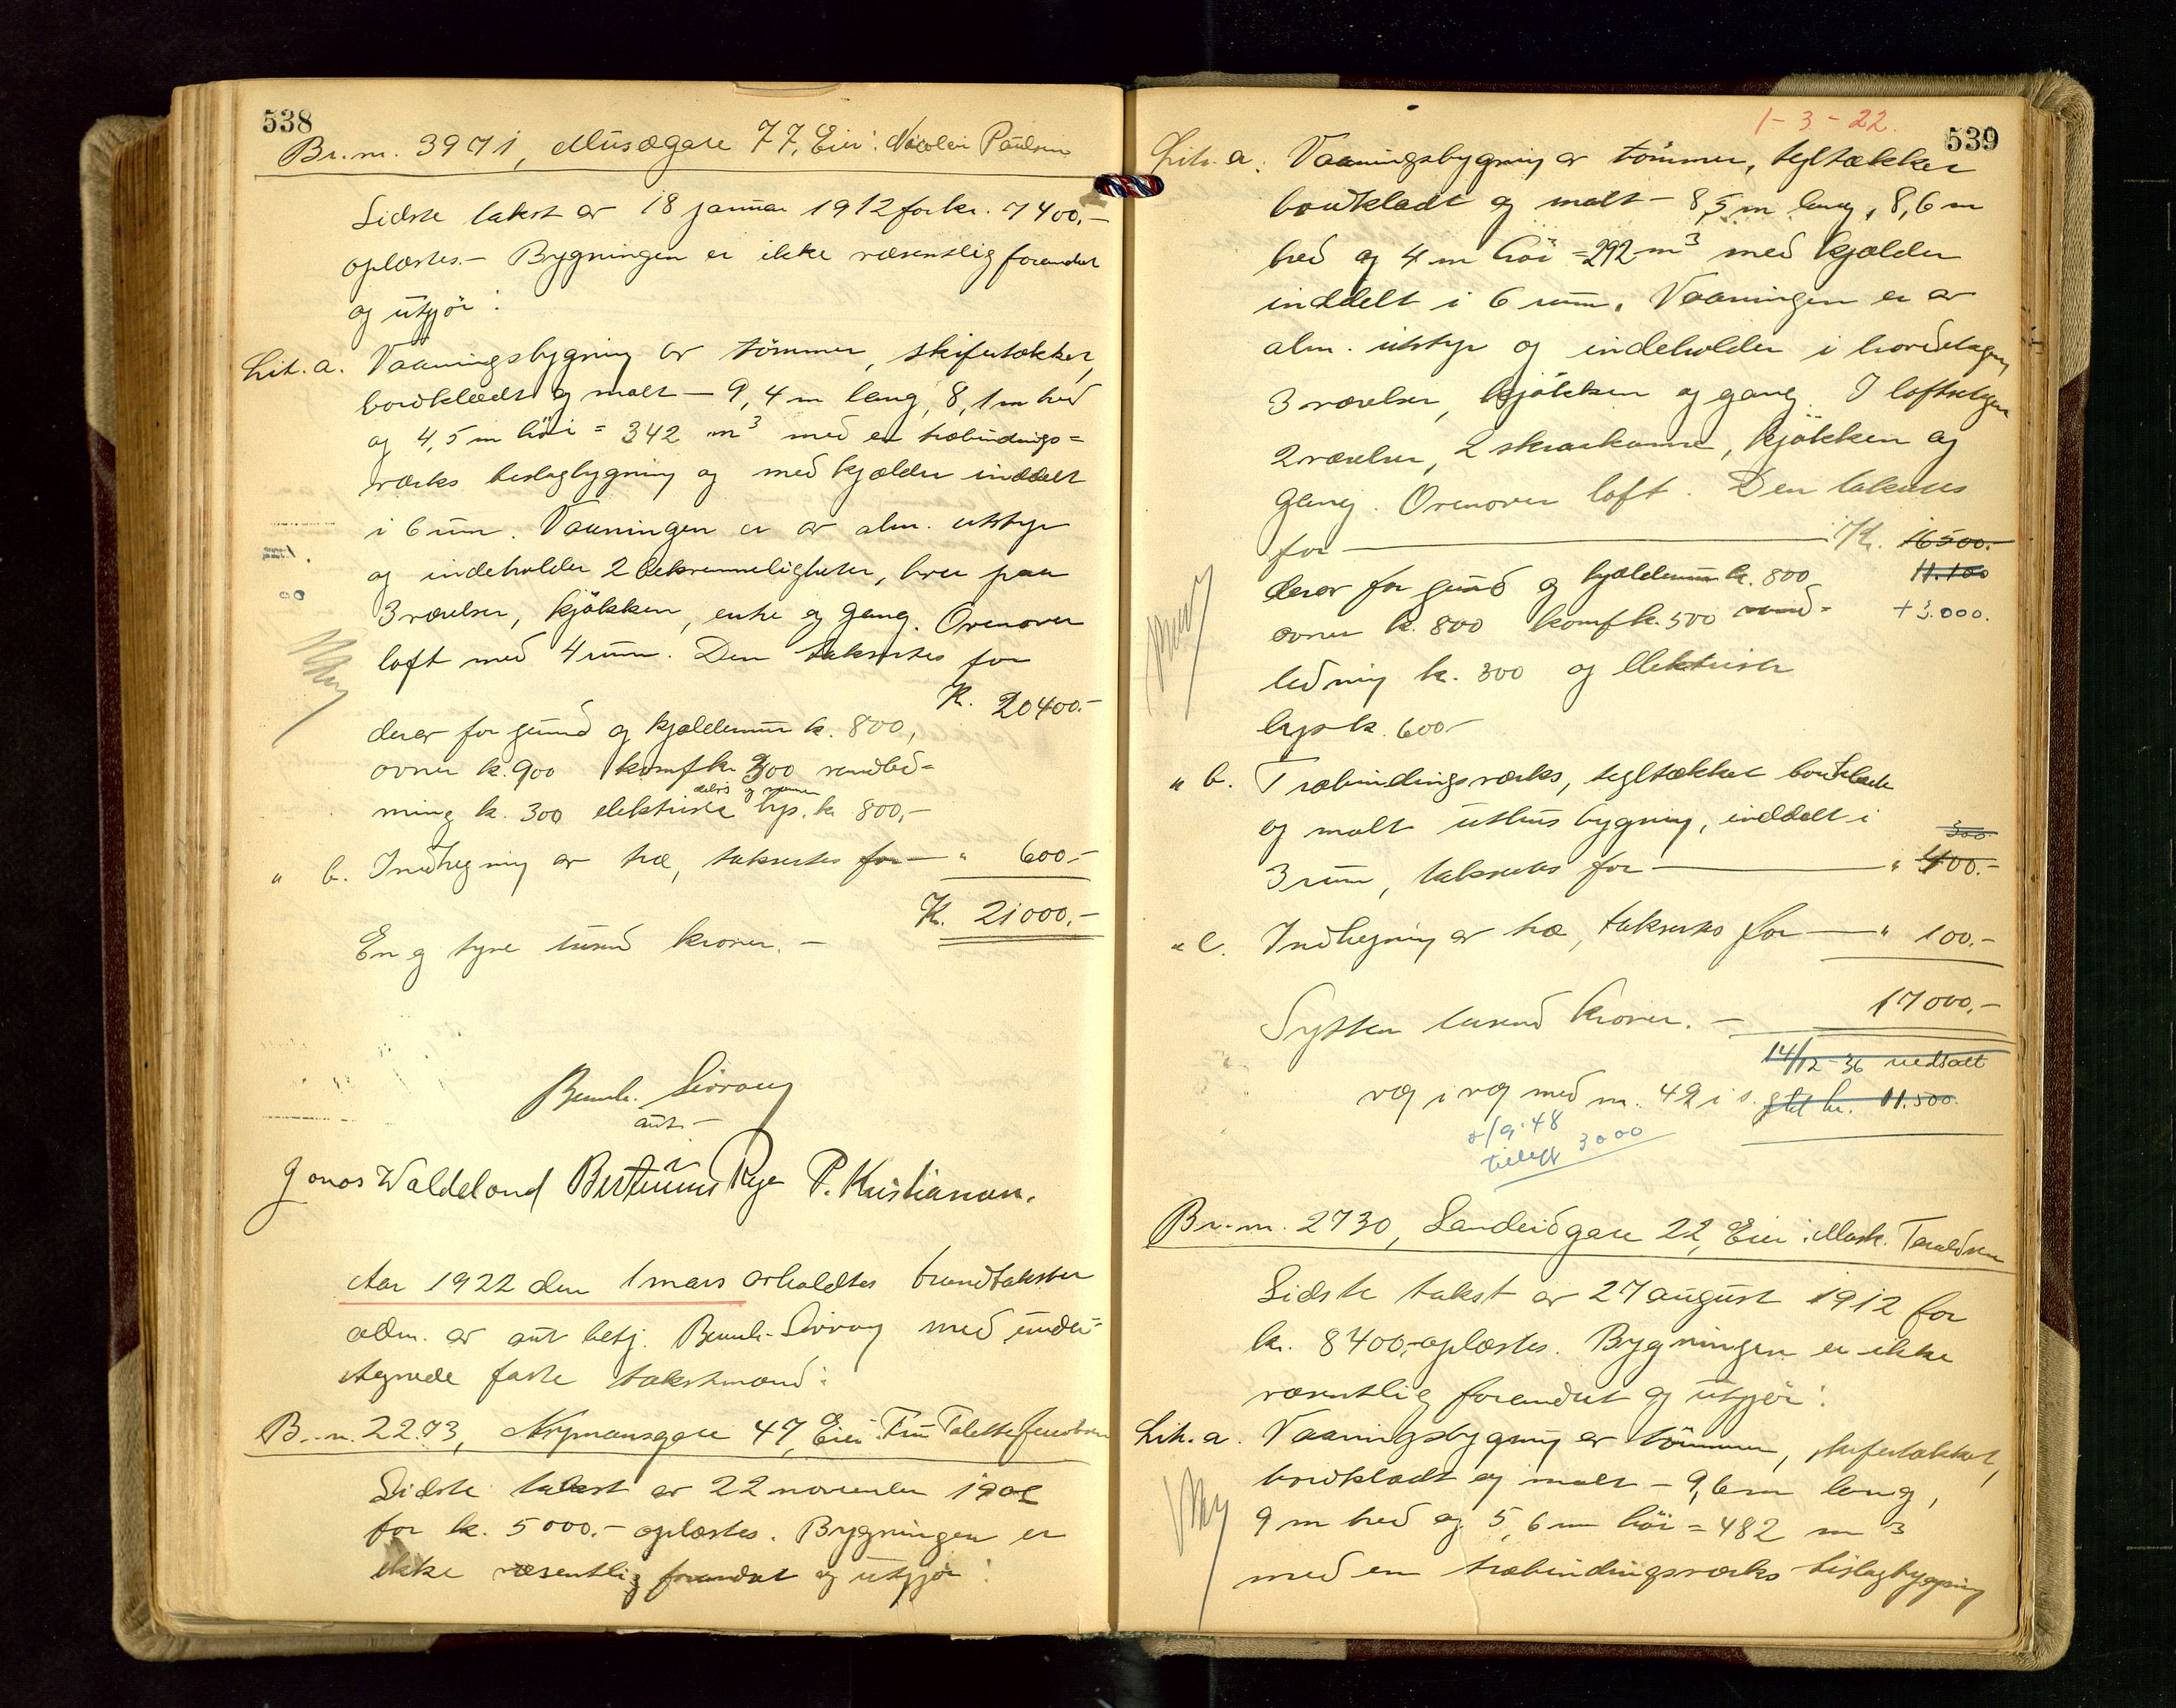 538
Br. nr. 3971, Musægate 77, Eier: Nicolai Paulsen
Sidste takst av 18 januar 1912 for kr. 7400,-
oplæstes.- Bygningen er ikke væsentlig forandret
og utgjör:
Lit. a. Vaaningsbygning av tömmer, skifertækket,
bordklædt og malt - 9,4 m lang, 8,1 m bred
og 4,5 m höi = 342 m³ med en træbindings=
værks bislagbygning og med kjælder inddelt
i 6 rum. Vaaningen er av alm. utstyr
og indeholder 2 bekvemmeligheter, hver paa
3 værelser, kjökken, entre og gang. Ovenover
loft med 4 rum. Den taksertes for
Kr. 20400.-
derav for grund og kjeldermur kr. 800,
ovner kr. 900 komf kr. 500 vandled=
ning kr. 300 elektrisk lys. kr 800,-
" b. Indhegning av træ, taksertes for - " 600.-
Kr. 21000,-
En og tyve tusind kroner. -
Bernh. Sivrang
aut.-
Jonas Waldeland Bertinius Rege P. Kristiansen.
Aar 1922 den 1 mars avholdtes brandtakster
adm. av aut betj. Bernh. Sivrang med under=
tegnede faste takstmænd:
Br. nr. 2273, Nymansgate 47, Eier: Fru Talette
Sidste takst av 22 november 190
for kr. 5000.- oplæstes. Bygningen er
ikke væsentlig forandret og utgjör:
1-3-22.
539
Lit. a. Vaaningsbygning av tömmer, tegltækket
bordklædt og malt - 8,5 m lang, 8,6 m
bred og 4 m höi = 292 m³ med kjælder
inddelt i 6 rum. Vaaningen er av
alm. utstyr og indeholder i hovedetagen
3 værelser, kjökken og gang. I loftsetagen
2 værelser, 2 skraakamre, kjökken og
gang. Ovenover loft. Den takseres
for - Kr. 16500.-
derav for grund og kjeldermur kr. 800 11.100
ovner kr. 800 komf kr. 500 vand= + 3.000.
ledning kr. 300 og elektrisk
lys kr. 600-
" b. Træbindingsværks, tegltækket bordklædt
og malt uthus bygning, inddelt i
300
3 rum, takseres for - " 400.-
" c. Indhegning av træ, takseres for - " 100.-
17000,-
Sytten tusend kroner. -
14/12-36 nedsatt
væg i væg med nr. 49 i s. gtd kr. 11.500.
/9-48
tillegg 3000
Br. nr. 2730, Sandeidgate 22, Eier: Mask. Taraldsen
Sidste takst av 27 august 1912 for
kr. 8400,- oplæstes. Bygningen er ikke
væsentlig forandret og utgjör:
Lit. a. Vaaningsbygning av tömmer, skifertækket,
bordklædt og malt - 9,6 m lang,
9 m bred og 5,6 m höi = 482 m³
med en træbindingsværks bislagbygning